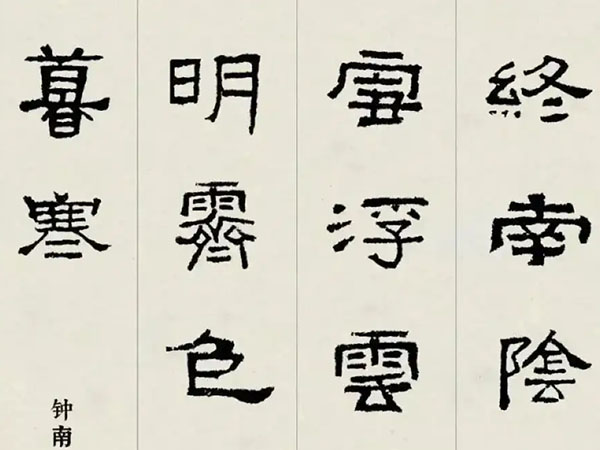 終南陰
雪浮雲
明霽色
暮寒
钟南